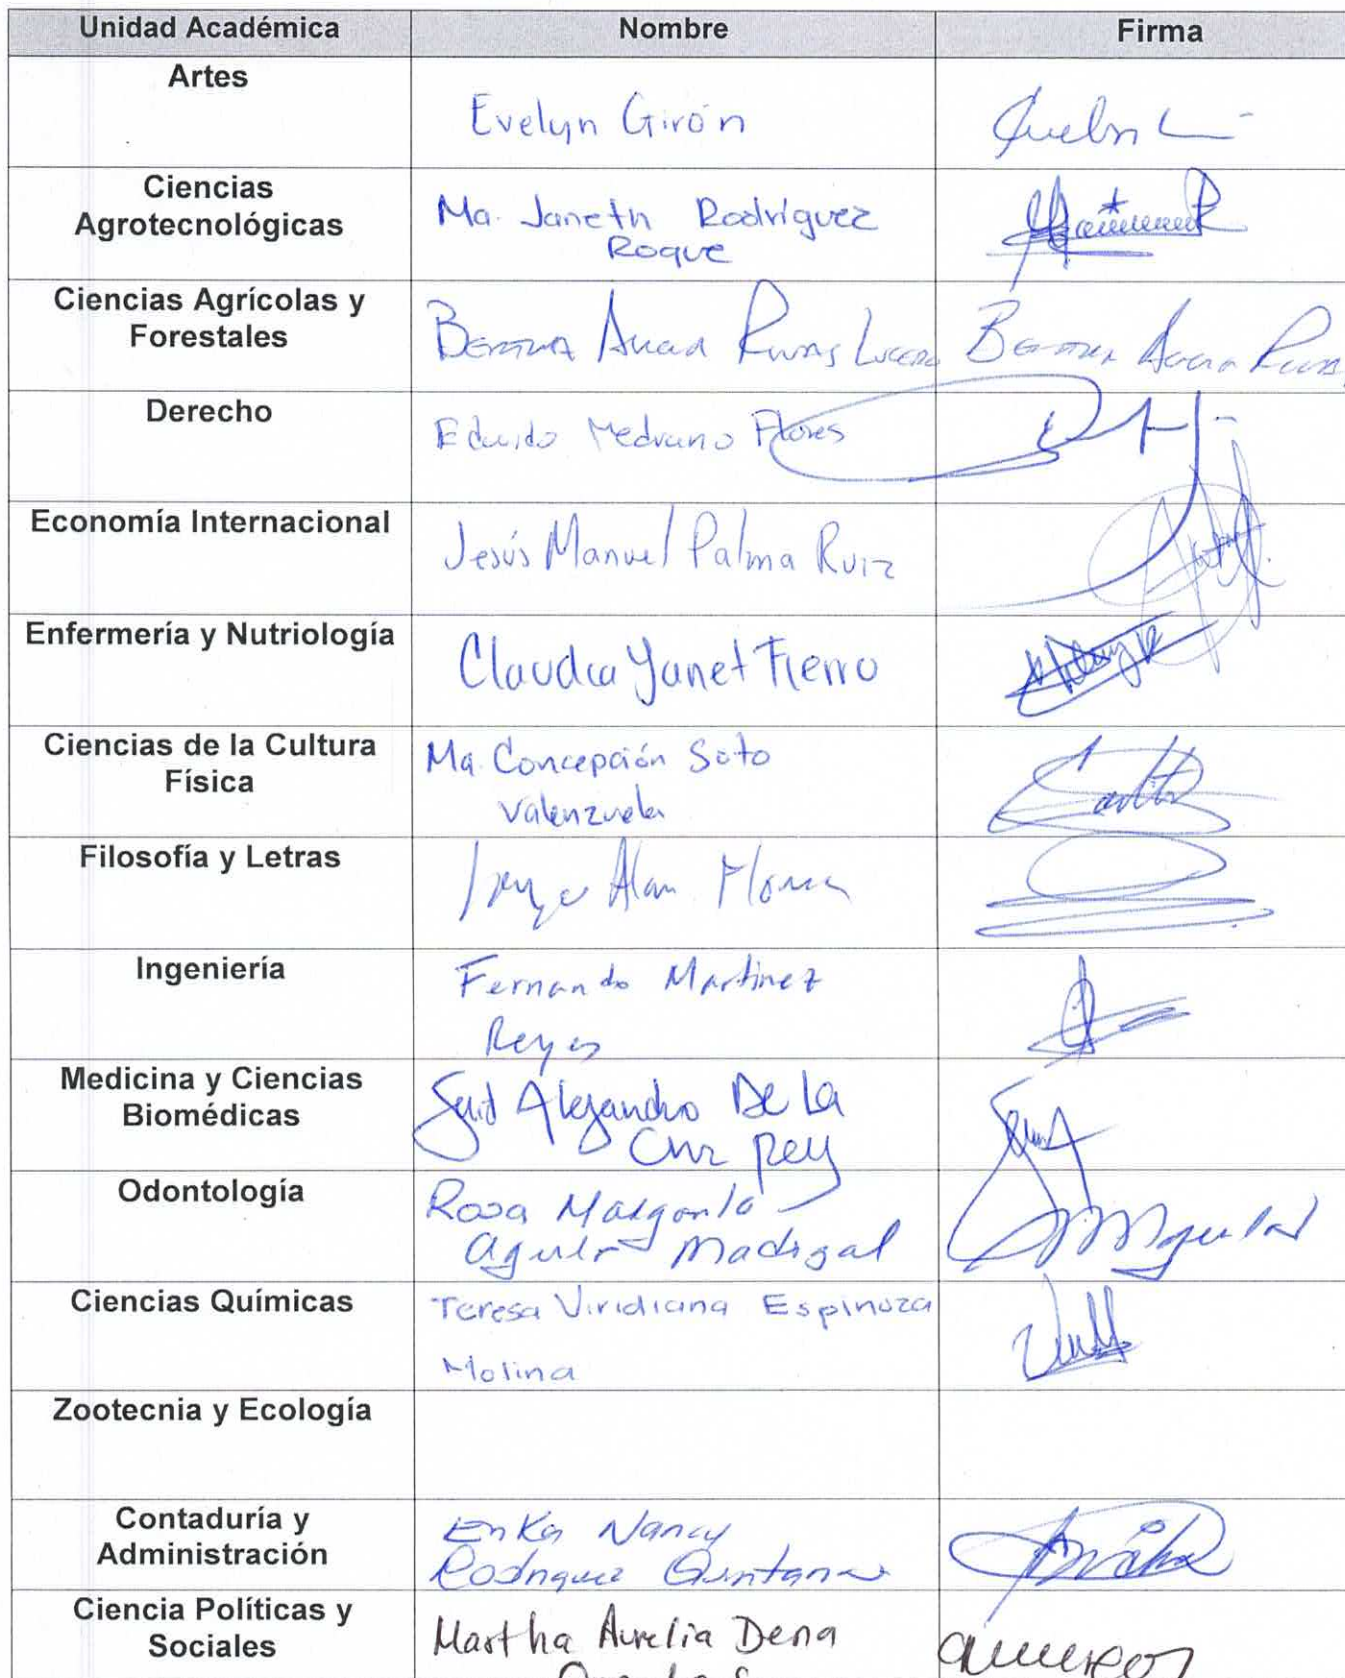 Unidad Académica Nombre Firma
Artes
Evelyn Girón
Ciencias
Agrotecnológicas
Ma. Janeth Rodríguez
Roque
Ciencias Agrícolas y
Forestales
Bertha Alicia Rivas Lucero Bertha Alicia Rivas
Derecho
Eduardo Medrano Flores
Economía Internacional
Jesús Manuel Palma Ruiz
Enfermería y Nutriología
Claudia Yanet Fierro
Ciencias de la Cultura
Física
Ma. Concepción Soto
Valenzuela
Filosofía y Letras
Alan
Ingeniería
Fernando Martinez
Reyes
Medicina y Ciencias
Biomédicas
Alejandro De La
Cruz Rey
Odontología
Rosa Margarita
Aguilar Madrigal
Ciencias Químicas
Teresa Viridiana Espinoza
Molina
Zootecnia y Ecología
Contaduría y
Administración
Erika Nancy
Rodriguez Quintana
Ciencia Políticas y
Sociales
Martha Aurelia Dena